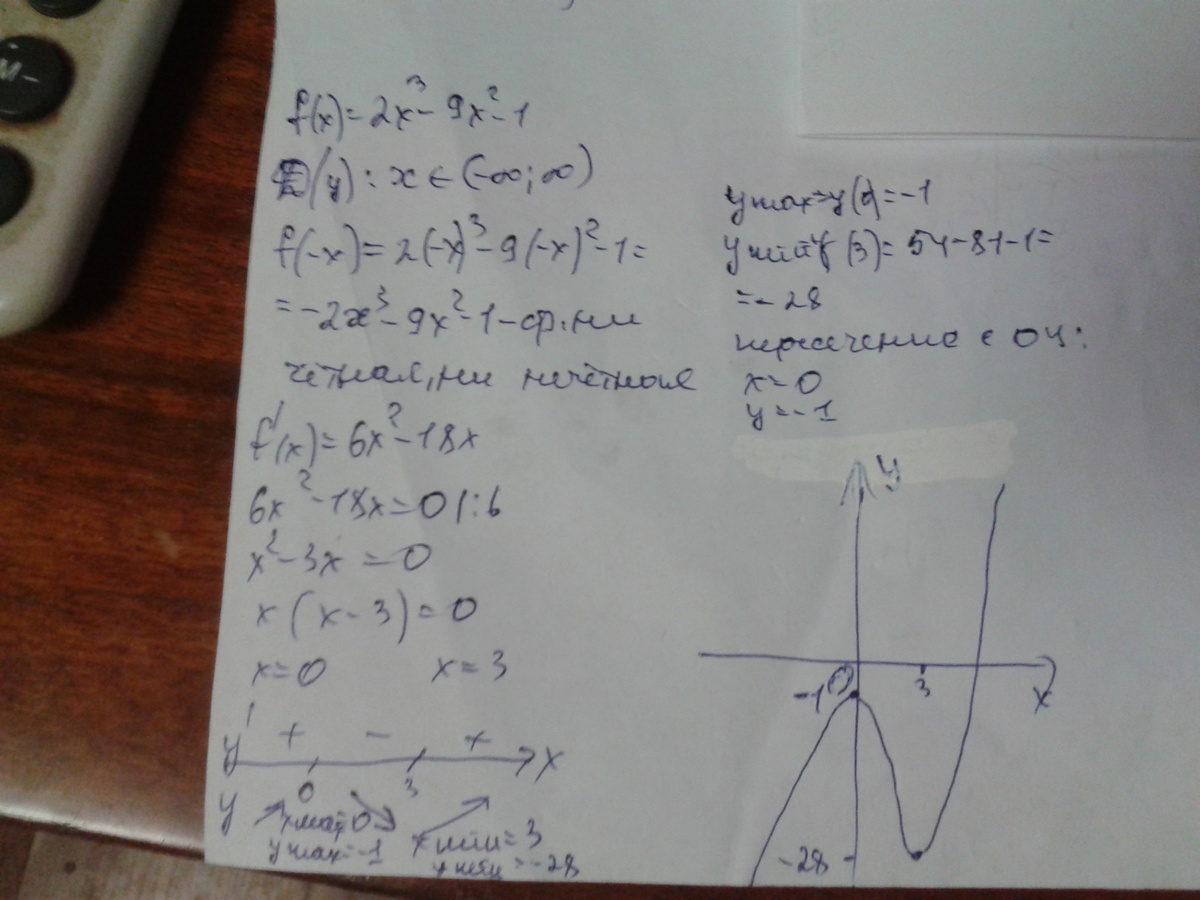 M-
f(x)=2x³-9x²-1
(y): x∈(-∞;∞)
f(-x)=2(-x)³-9(-x)²-1=
=-2x³-9x²-1-ф. ни
чётная, ни нечётная
f'(x)=6x²-18x
6x²-18x=0 |:6
x²-3x=0
x(x-3)=0
x=0 x=3
y' + - + x
0 3
y
xmax=0 xmin=3
ymax=-1 ymin=-28
ymax=y(0)=-1
ymin=y(3)=54-81-1=
=-28
пересечение с OY:
x=0
y=-1
y
-1 0 3 x
-28